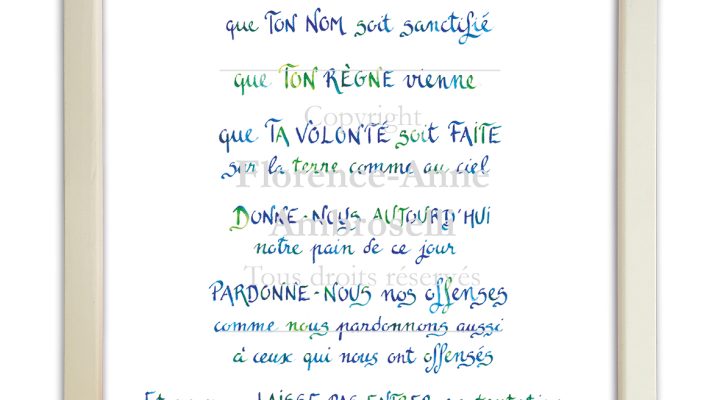 que TON NOM soit sanctifié
que TON RÈGNE vienne
Copyright
que TA VOLONTÉ soit FAITE
sur la terre comme au ciel
Florence-Anne
DONNE-NOUS AUJOURD'HUI
Ambroselli
notre pain de ce jour
Tous droits réservés
PARDONNE-NOUS nos offenses
comme nous pardonnons aussi
à ceux qui nous ont offensés
Et LAISSE PAS ENTRER en tentation